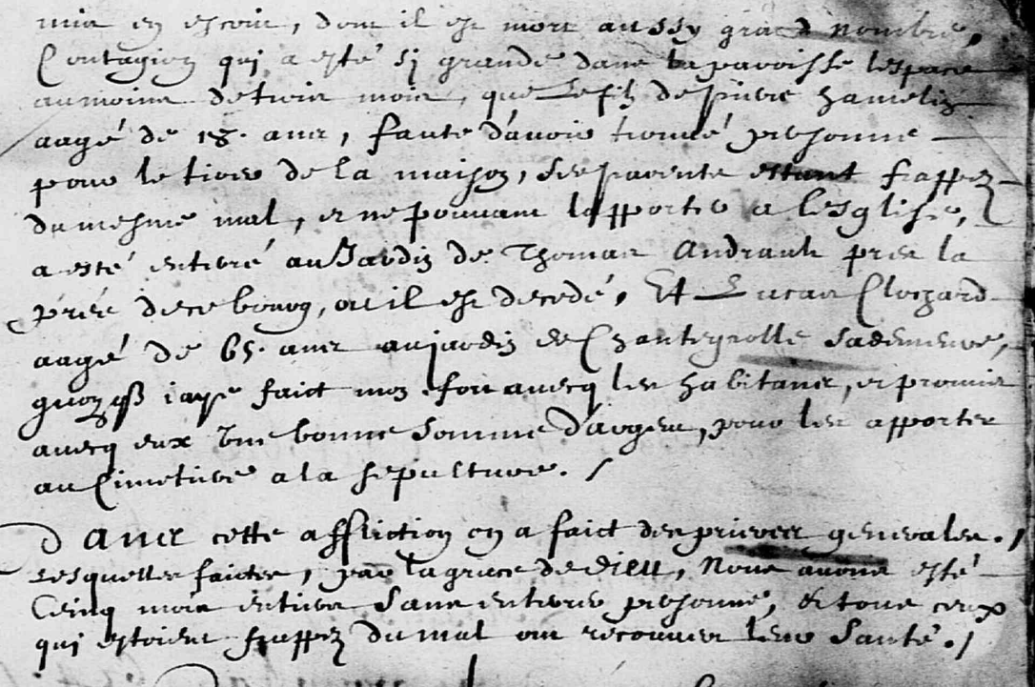 mis en escrit, dont il est mort aussy grand nombre,
Contagion qui a esté si grande dans la paroisse l'espace
au moins de trois mois, que Le filz de pierre hamelin
aagé de 18. ans, faute d'avoir trouvé personne
pour le tirer de la maison, ses parents estant frappez
du mesme mal, et ne pouvant l'apporter a l'esglise,
a esté enterré au Jardin de Thomas Andrault pres la
prée de ce bourg, ou il est decedé. Et Lucas Clochard
aagé de 65. ans au jardin de Chantegrolle sa demeure,
quoyque j'aye faict mon fort avecq les habitans, et promis
avecq eux une bonne somme d'argent, pour les apporter
au Cimetiere a la sepulture./
Dans cette affliction on a faict des prieres generales./
Lesquelles faictes, par la grace de Dieu, Nous avons esté
Cinq mois entiers sans enterrer personne, et tous ceux
qui estoient frappez du mal ont recouvert leur santé./